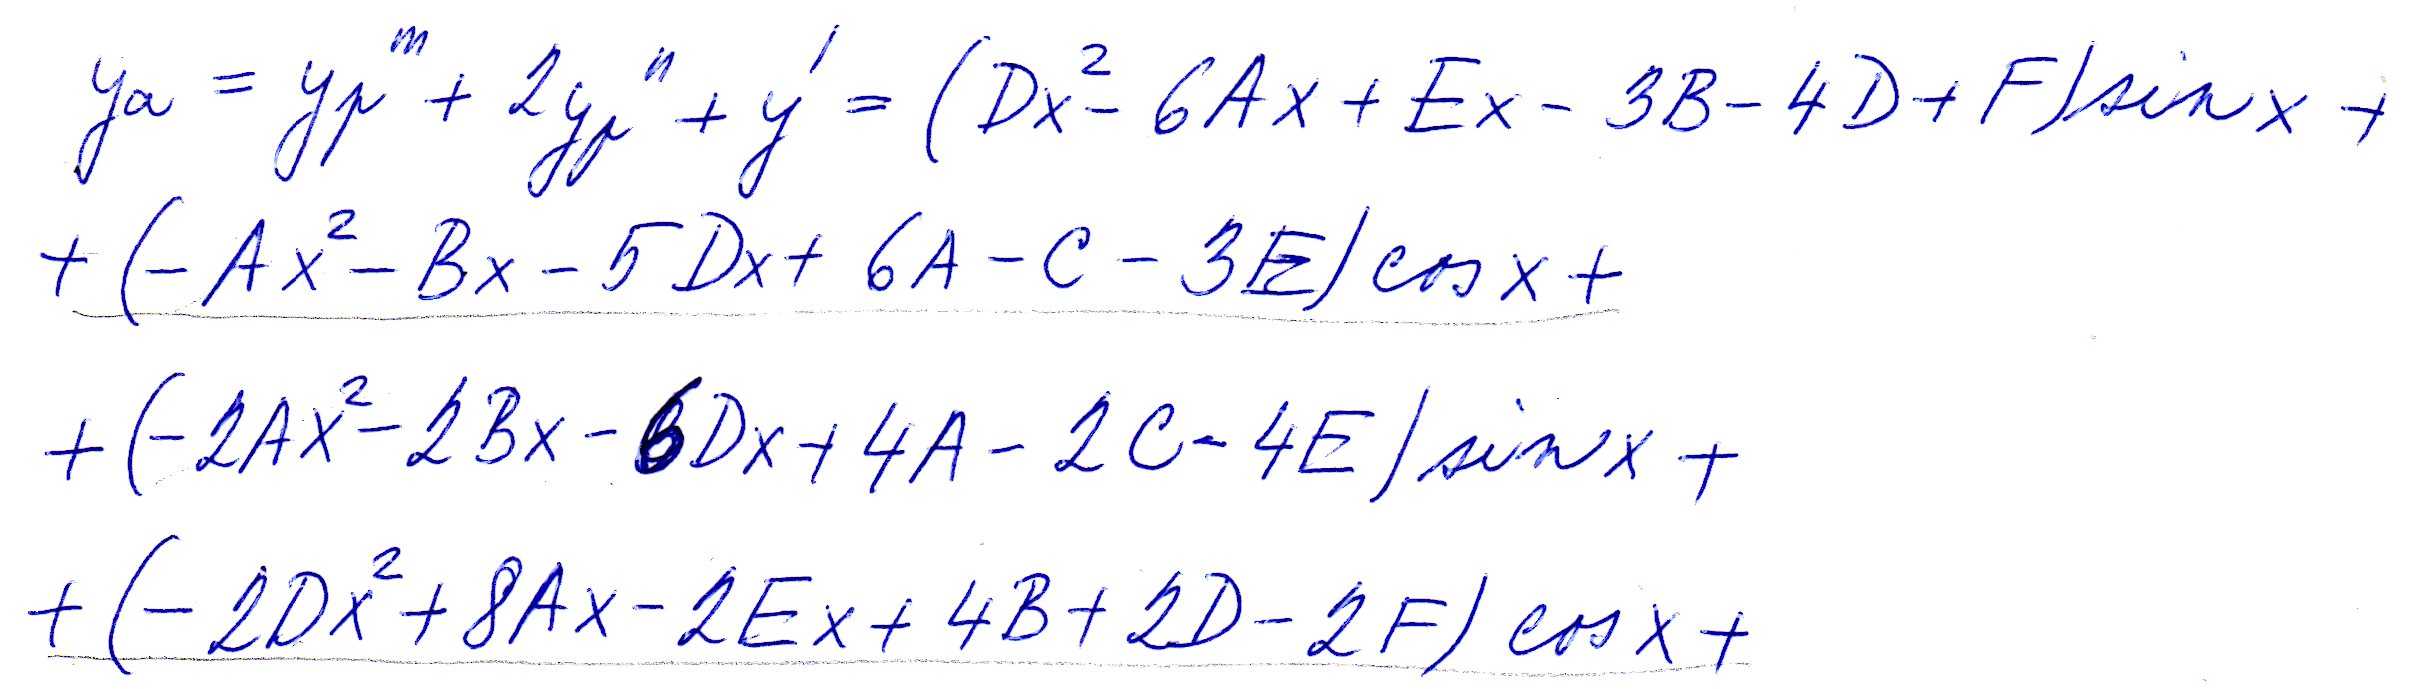 ya = yp''' + 2yp'' + y' = (Dx² - 6Ax + Ex - 3B - 4D + F) sin x +
+ (-Ax² - Bx - 5Dx + 6A - C - 3E) cos x +
+ (-2Ax² - 2Bx - 6Dx + 4A - 2C - 4E) sin x +
+ (-2Dx² + 8Ax - 2Ex + 4B + 2D - 2F) cos x +